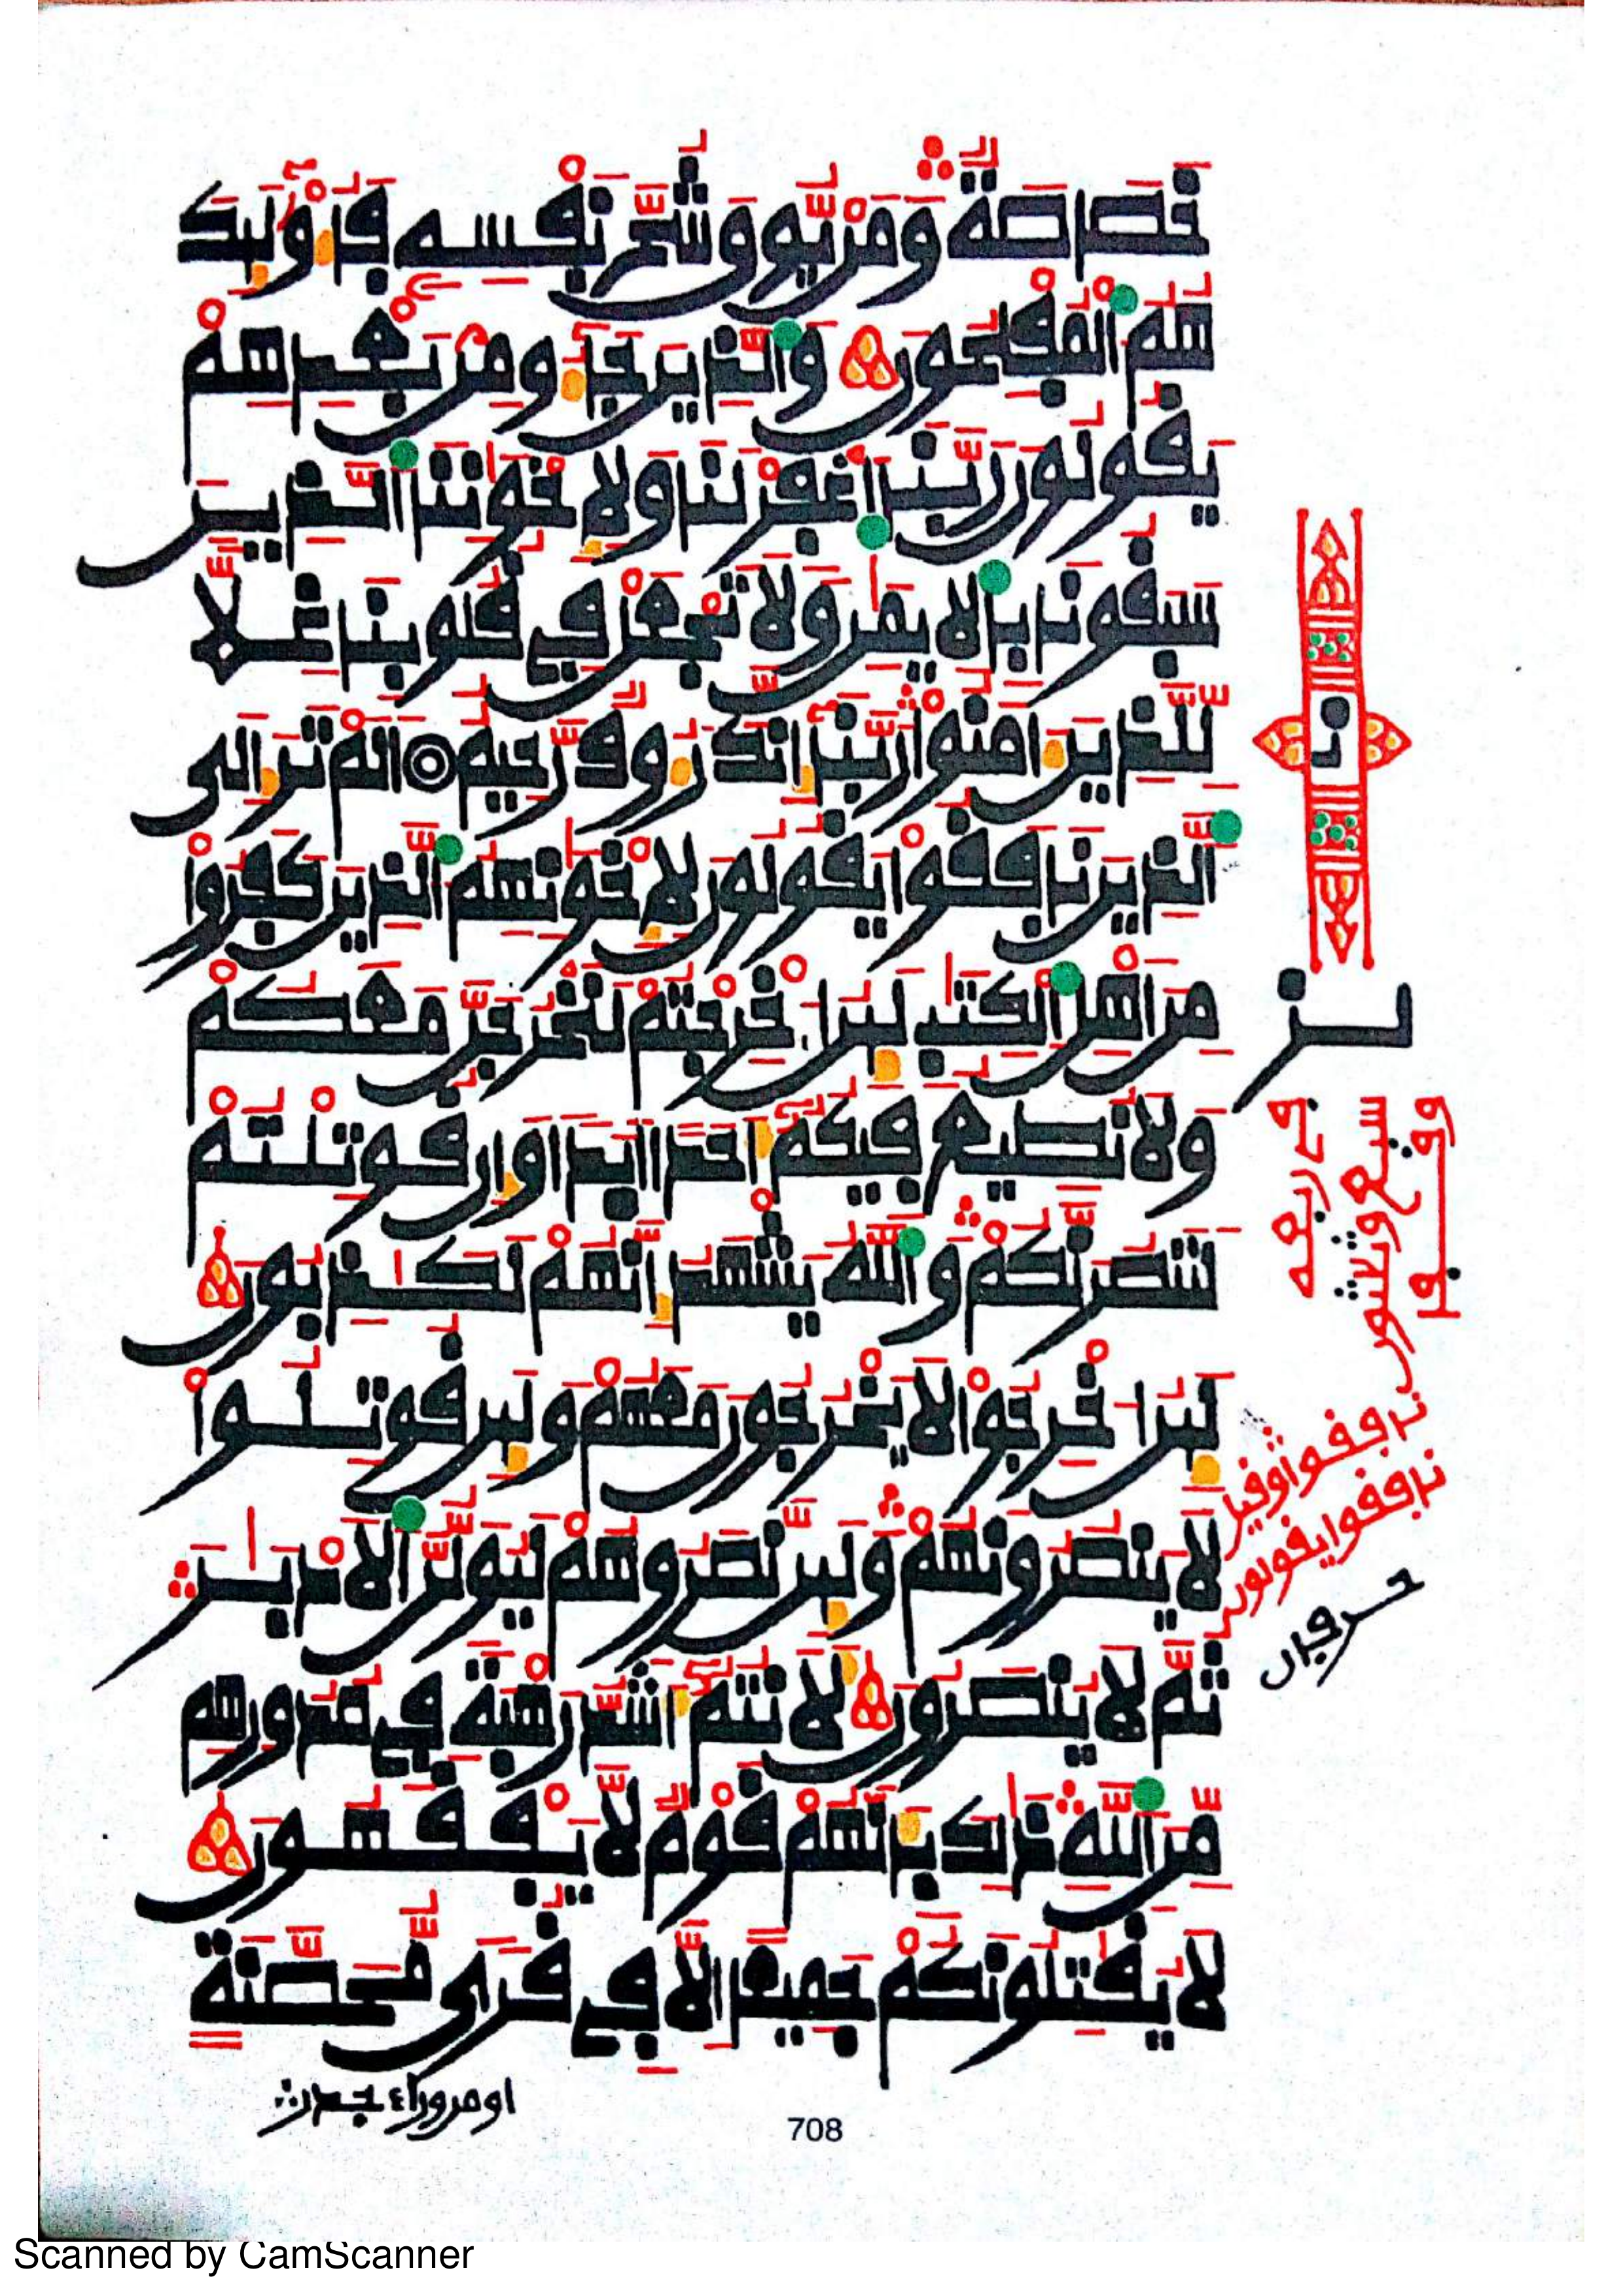 خَصَاصَةٌ وَمَن يُّوقَ شُحَّ نَفْسِهِ فَأُوْلَٰٓئِكَ
هُمُ الْمُفْلِحُونَ وَالَّذِينَ جَآءُو مِنۢ بَعْدِهِمْ
يَقُولُونَ رَبَّنَا اغْفِرْ لَنَا وَلِإِخْوَٰنِنَا الَّذِينَ
سَبَقُونَا بِالِايمَٰنِ وَلَا تَجْعَلْ فِي قُلُوبِنَا غِلّٗا
لِّلَّذِينَ ءَامَنُواْ رَبَّنَآ إِنَّكَ رَءُوفٌ رَّحِيمٌ أَلَمْ تَرَ إِلَى
الَّذِينَ نَافَقُواْ يَقُولُونَ لِإِخْوَٰنِهِمُ الَّذِينَ كَفَرُواْ
مِنَ اَهْلِ الْكِتَٰبِ لَئِنُ اخْرِجْتُمْ لَنَخْرُجَنَّ مَعَكُمْ
وَلَا نُطِيعُ فِيكُمُۥٓ أَحَدًا اَبَدًا وَإِن قُوتِلْتُمْ
لَنَنصُرَنَّكُمْ وَاللَّهُ يَشْهَدُ إِنَّهُمْ لَكَٰذِبُونَ
لَئِنُ اخْرِجُواْ لَا يَخْرُجُونَ مَعَهُمْ وَلَئِن قُوتِلُواْ
لَا يَنصُرُونَهُمْ وَلَئِن نَّصَرُوهُمْ لَيُوَلُّنَّ الَادْبَٰرَ
ثُمَّ لَا يُنصَرُونَ لَأَنتُمُۥٓ أَشَدُّ رَهْبَةً فِي صُدُورِهِم
مِّنَ اللَّهِ ذَٰلِكَ بِأَنَّهُمْ قَوْمٌ لَّا يَفْقَهُونَ
لَا يُقَٰتِلُونَكُمْ جَمِيعًا اِلَّا فِي قُرًى مُّحَصَّنَةٍ
او من وراء جدر
708
ن
حزب
نافقوا وقيل
نافقوا يقولون
حرفان
Scanned by CamScanner